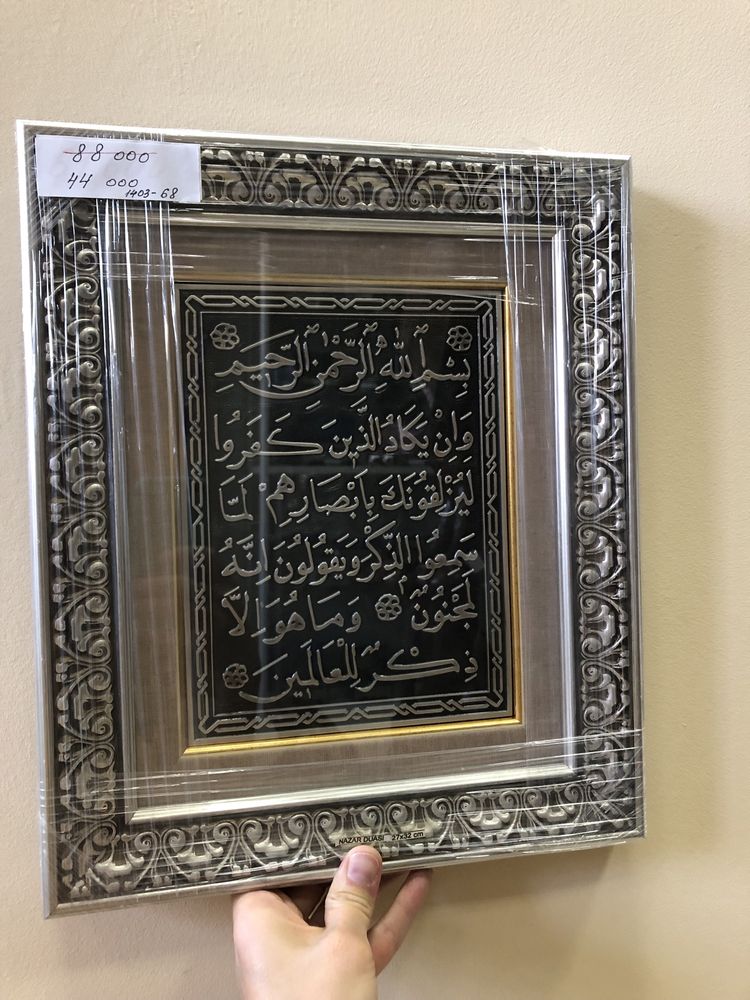 88 000
44 000
1403-68
بِسْمِ اللّٰهِ الرَّحْمٰنِ الرَّحِيمِ
وَاِنْ يَكَادُ الَّذِينَ كَفَرُوا
لَيُزْلِقُونَكَ بِاَبْصَارِهِمْ لَمَّا
سَمِعُوا الذِّكْرَ وَيَقُولُونَ اِنَّهُ
لَمَجْنُونٌ وَمَا هُوَ اِلَّا
ذِكْرٌ لِلْعَالَمِينَ
NAZAR DUASI 27x32 cm